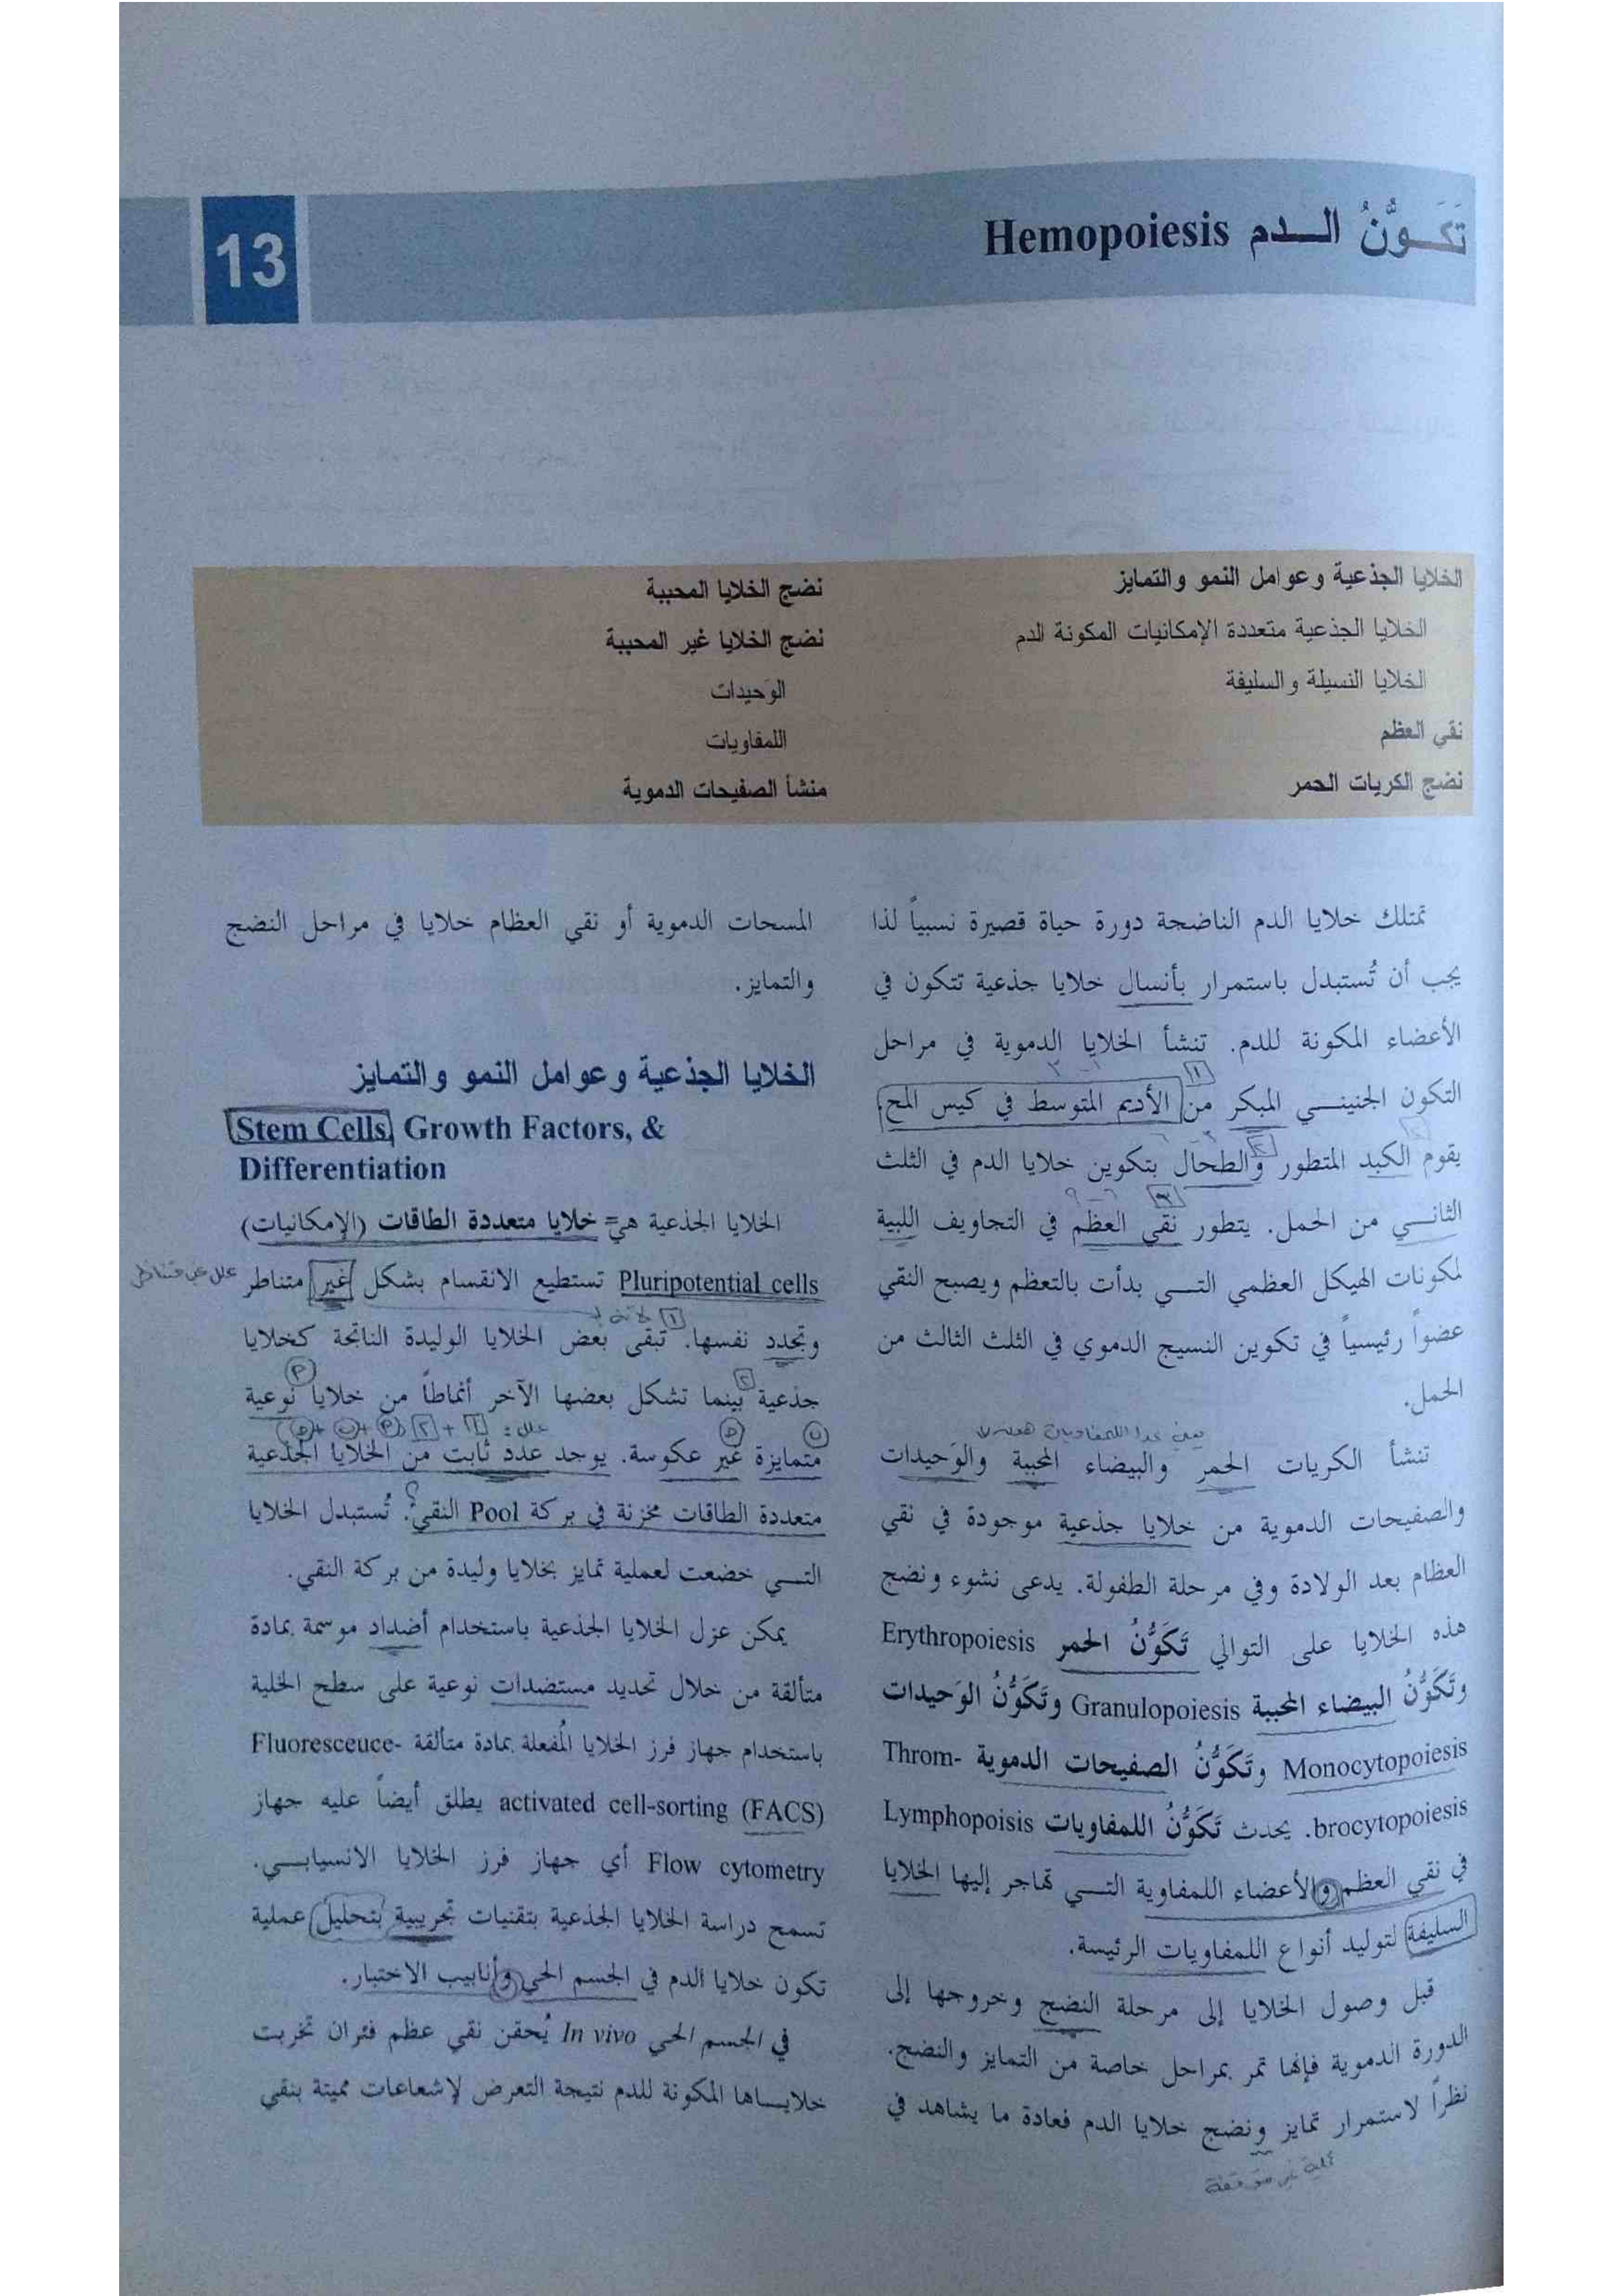 تَكَـوُّنُ الــدم Hemopoiesis
13
الخلايا الجذعية وعوامل النمو والتمايز
الخلايا الجذعية متعددة الإمكانيات المكونة الدم
الخلايا النسيلة والسليفة
نقي العظم
نضج الكريات الحمر
نضج الخلايا المحببة
نضج الخلايا غير المحببة
الوَحيدات
اللمفاويات
منشأ الصفيحات الدموية
تمتلك خلايا الدم الناضجة دورة حياة قصيرة نسبياً لذا
يجب أن تُستبدل باستمرار بأنسال خلايا جذعية تتكون في
الأعضاء المكونة للدم. تنشأ الخلايا الدموية في مراحل
التكون الجنينـــي المبكر من الأديم المتوسط في كيس المح
يقوم الكبد المتطور والطحال بتكوين خلايا الدم في الثلث
الثانـــي من الحمل. يتطور نقي العظم في التجاويف اللبية
لمكونات الهيكل العظمي التـــي بدأت بالتعظم ويصبح النقي
عضواً رئيسياً في تكوين النسيج الدموي في الثلث الثالث من
الحمل.
تنشأ الكريات الحمر والبيضاء المحببة والوَحيدات
والصفيحات الدموية من خلايا جذعية موجودة في نقي
العظام بعد الولادة وفي مرحلة الطفولة. يدعى نشوء ونضج
هذه الخلايا على التوالي تَكَوُّنُ الحمر Erythropoiesis
وتَكَوُّنُ البيضاء المحببة Granulopoiesis وتَكَوُّنُ الوَحيدات
Monocytopoiesis وتَكَوُّنُ الصفيحات الدموية Throm-
brocytopoiesis. يحدث تَكَوُّنُ اللمفاويات Lymphopoisis
في نقي العظم والأعضاء اللمفاوية التـــي تهاجر إليها الخلايا
السليفة لتوليد أنواع اللمفاويات الرئيسة.
قبل وصول الخلايا إلى مرحلة النضج وخروجها إلى
الدورة الدموية فإنها تمر بمراحل خاصة من التمايز والنضج.
نظراً لاستمرار تمايز ونضج خلايا الدم فعادة ما يشاهد في
المسحات الدموية أو نقي العظام خلايا في مراحل النضج
والتمايز.
الخلايا الجذعية وعوامل النمو والتمايز
Stem Cells, Growth Factors, &
Differentiation
الخلايا الجذعية هي خلايا متعددة الطاقات (الإمكانيات)
Pluripotential cells تستطيع الانقسام بشكل غير متناظر
وتجدد نفسها. تبقى بعض الخلايا الوليدة الناتجة كخلايا
جذعية بينما تشكل بعضها الآخر أنماطاً من خلايا نوعية
متمايزة غير عكوسة. يوجد عدد ثابت من الخلايا الجذعية
متعددة الطاقات مخزنة في بركة Pool النقي. تُستبدل الخلايا
التـــي خضعت لعملية تمايز بخلايا وليدة من بركة النقي.
يمكن عزل الخلايا الجذعية باستخدام أضداد موسمة بمادة
متألقة من خلال تحديد مستضدات نوعية على سطح الخلية
باستخدام جهاز فرز الخلايا المُفعلة بمادة متألقة Fluoresceuce-
activated cell-sorting (FACS) يطلق أيضاً عليه جهاز
Flow cytometry أي جهاز فرز الخلايا الانسيابـــي.
تسمح دراسة الخلايا الجذعية بتقنيات تجريبية بتحليل عملية
تكون خلايا الدم في الجسم الحي وأنابيب الاختبار.
في الجسم الحي In vivo يُحقن نقي عظم فئران تخربت
خلاياها المكونة للدم نتيجة التعرض لإشعاعات مميتة بنقي